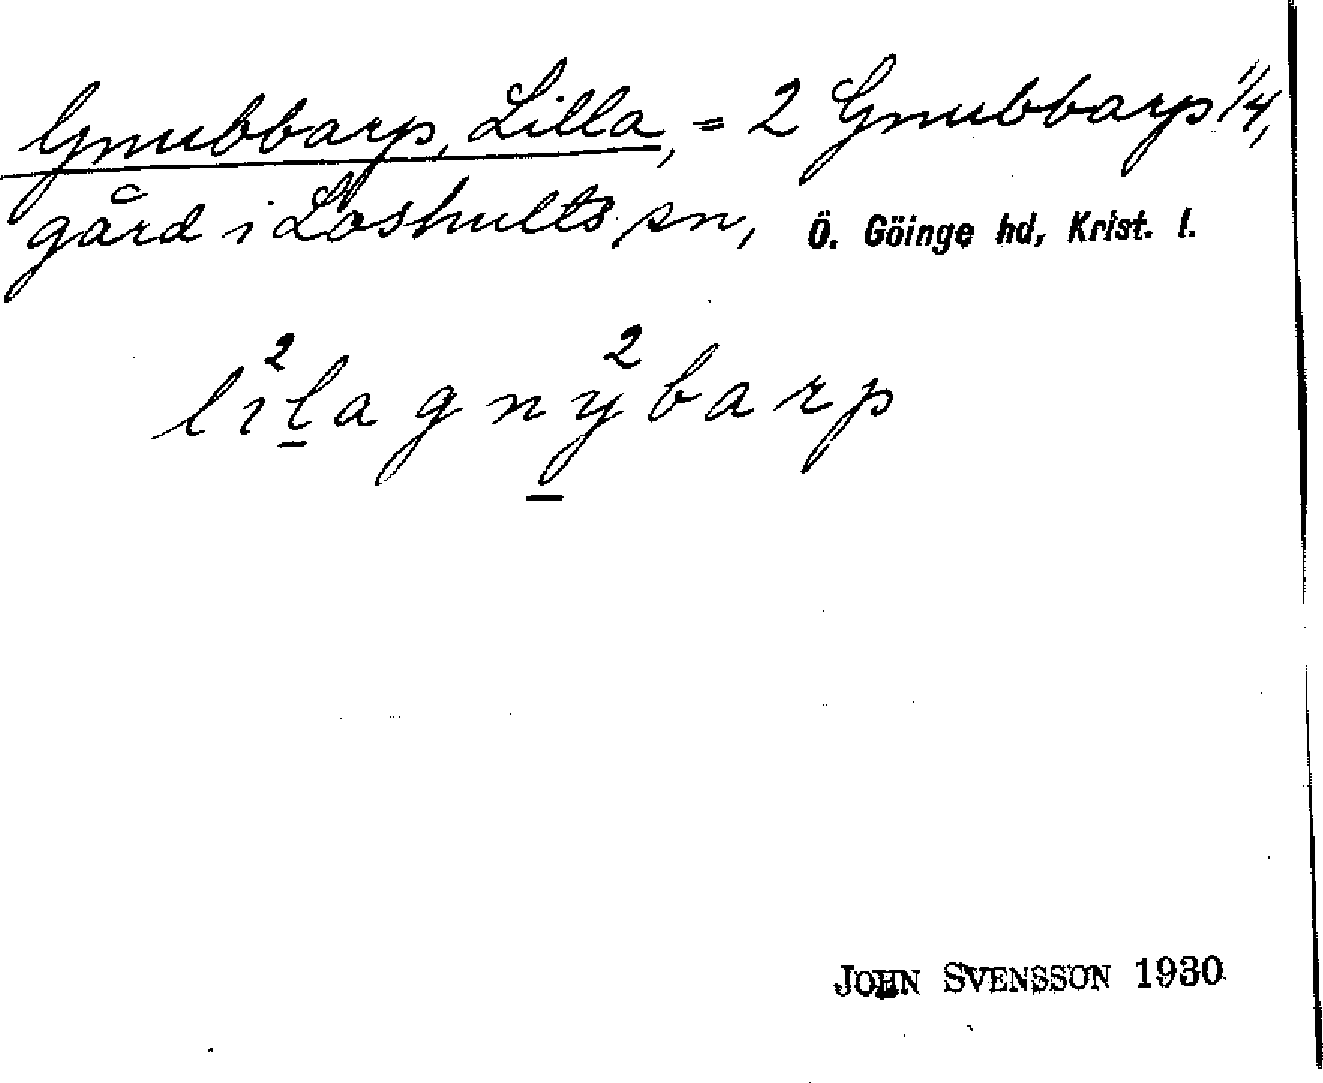 Gnubbarp, Lilla, = 2 Gnubbarp 1/4,
gård i Loshults sn, Ö. Göinge hd, Krist. l.
li²l̲a gny̲²barp
JOHN SVENSSON 1930